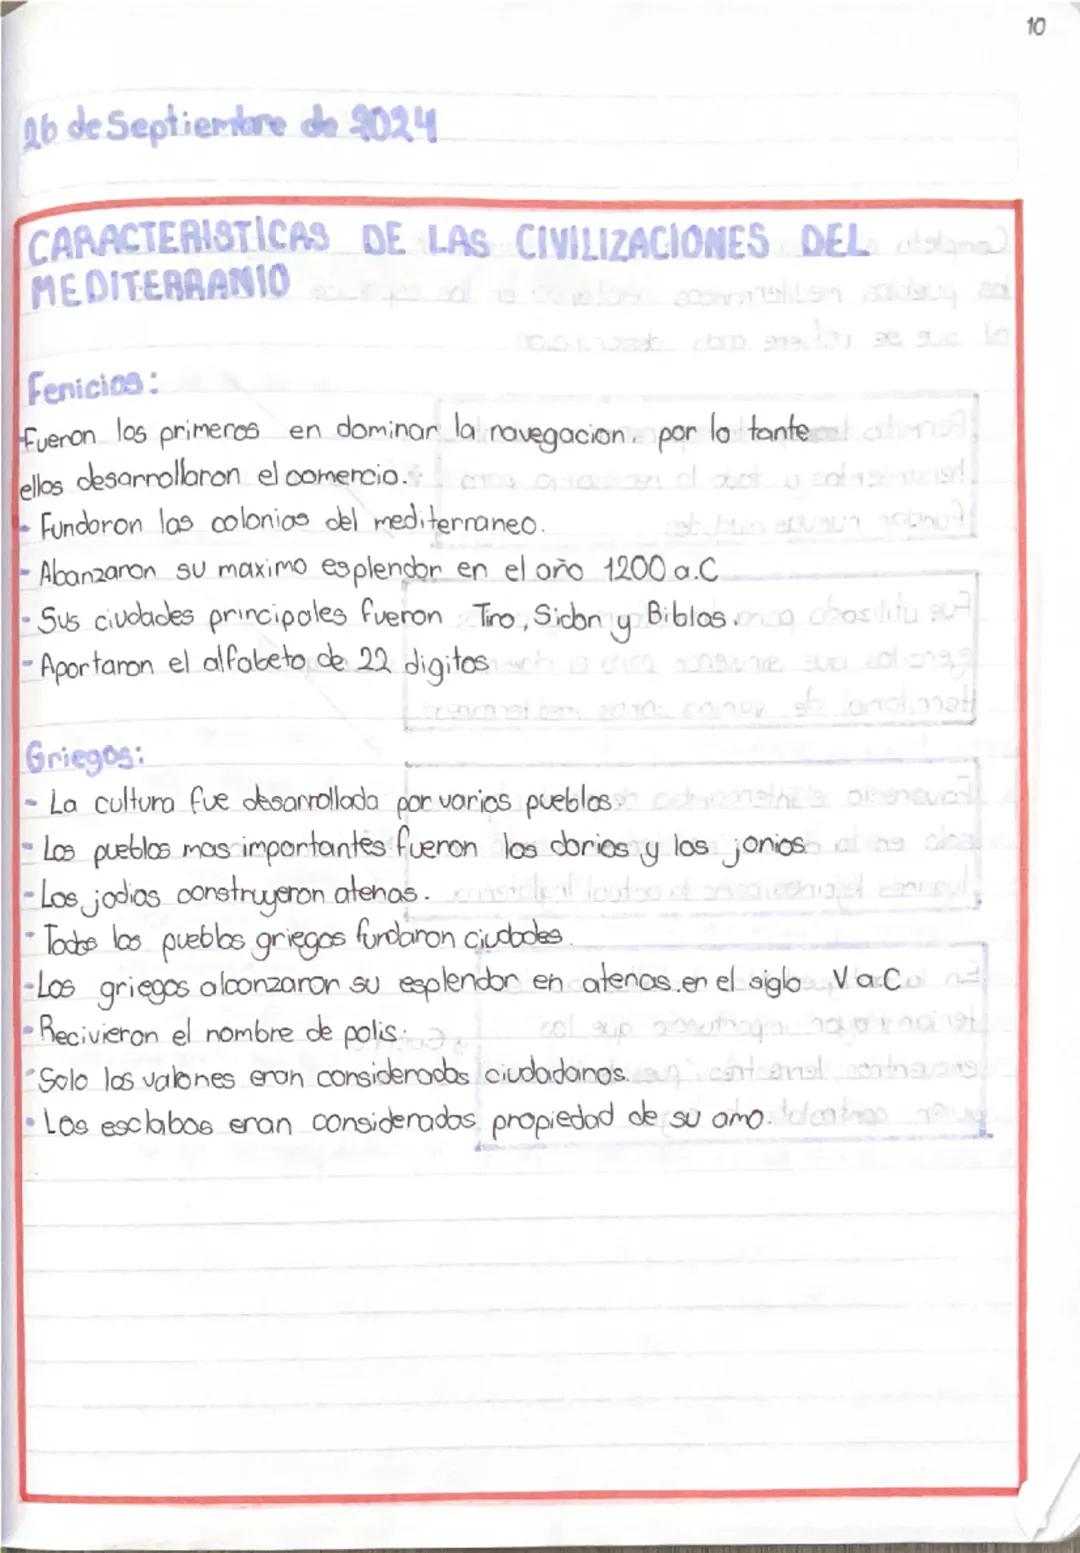 10
26 de Septiembre de 2024
CARACTERISTICAS DE LAS CIVILIZACIONES DEL
MEDITERRANIO
Fenicios:
Fueron los primeros en dominar la navegacion. por lo tante
ellos desarrollaron el comercio.
- Fundaron las colonias del mediterraneo.
- Abanzaron su maximo esplendor en el año 1200 a.C
- Sus ciudades principales fueron Tiro, Sidon y Biblos.
- Aportaron el alfabeto de 22 digitos
Griegos:
- La cultura fue desarrollada por varios pueblos.
- Los pueblos mas importantes fueron los dorios y los jonios.
- Los jodios construyeron atenas.
- Todos los pueblos griegos fundaron ciudades.
- Los griegos alcanzaron su esplendor en atenas.en el siglo V a.C
- Recivieron el nombre de polis.
- Solo los valones eran considerados ciudadanos.
- Los esclabos eran considerados propiedad de su amo.